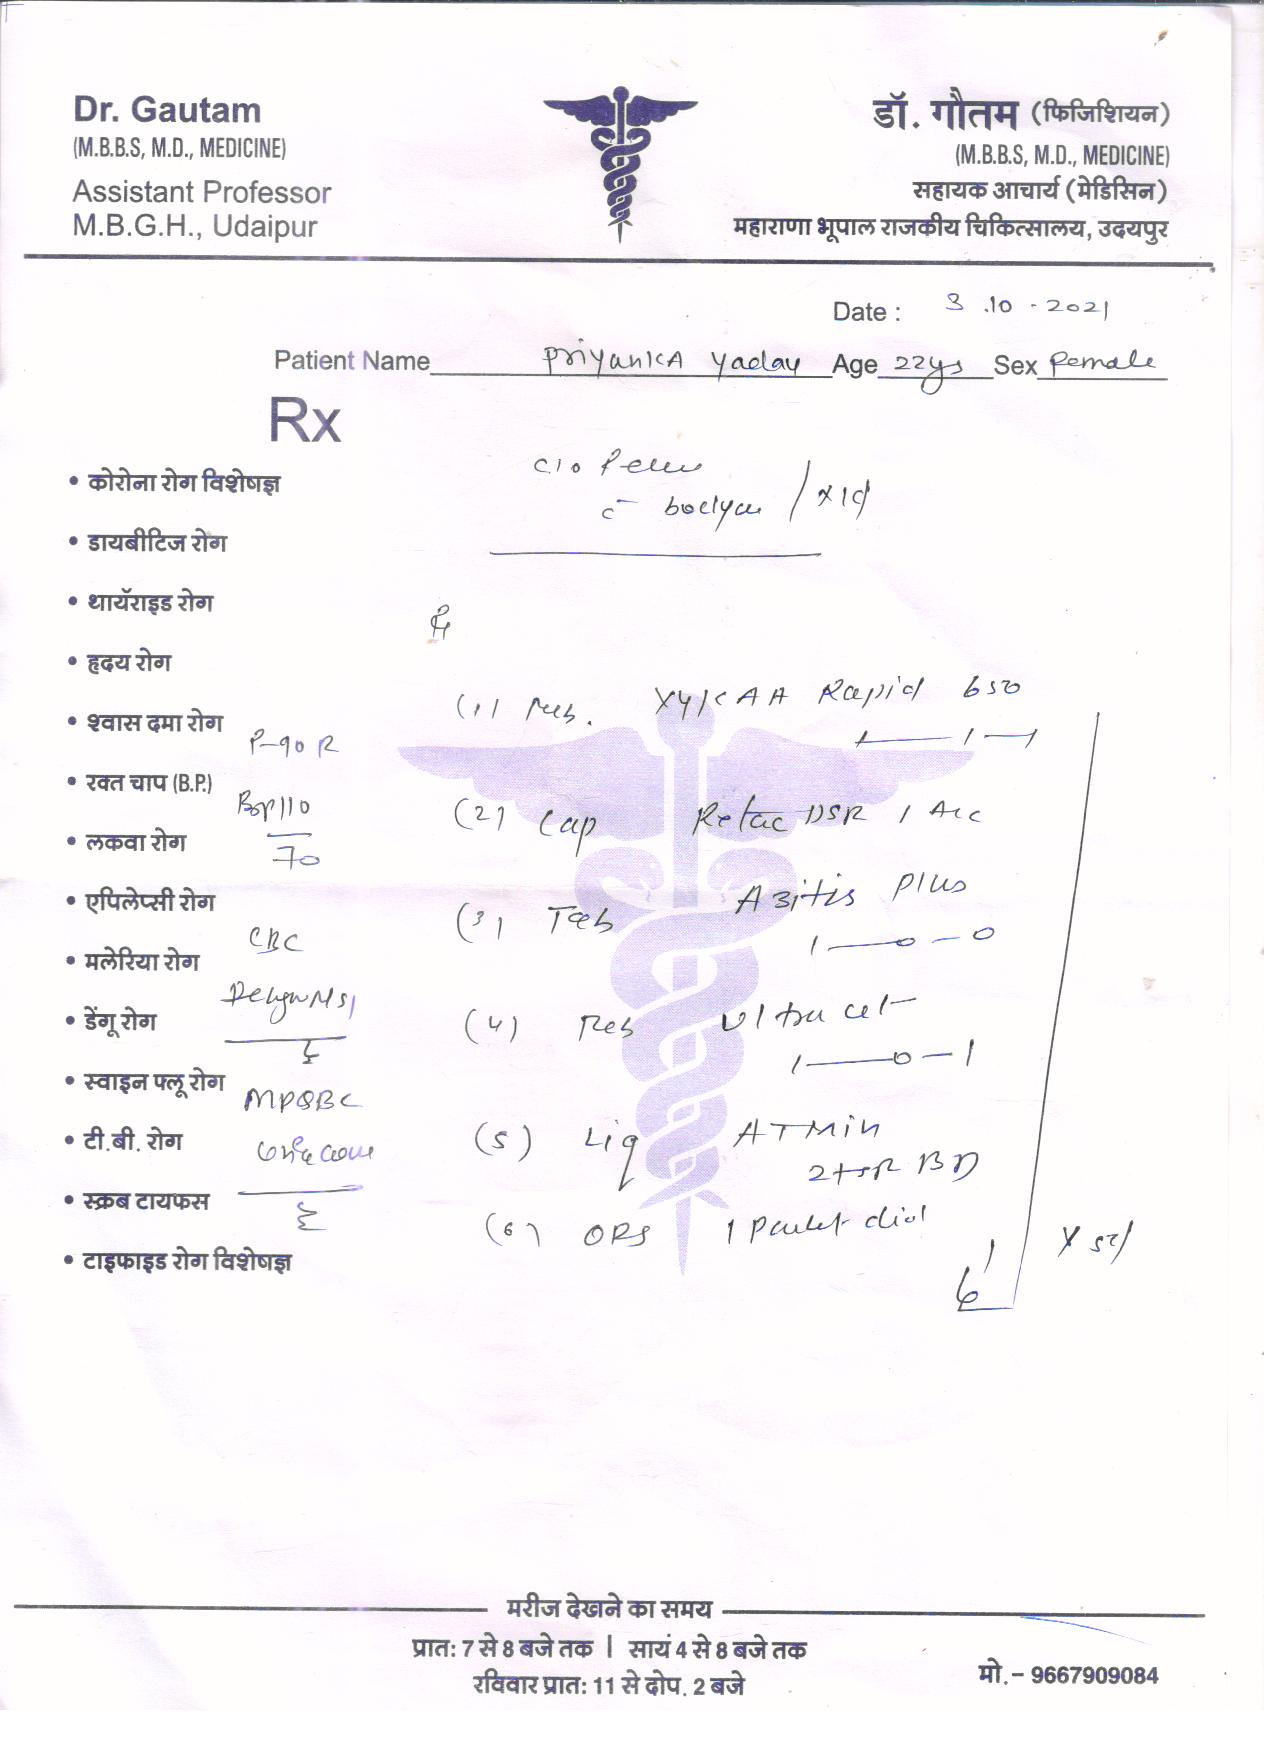 Dr. Gautam
(M.B.B.S, M.D., MEDICINE)
Assistant Professor
M.B.G.H., Udaipur
डॉ. गौतम (फिजिशियन)
(M.B.B.S, M.D., MEDICINE)
सहायक आचार्य (मेडिसिन)
महाराणा भूपाल राजकीय चिकित्सालय, उदयपुर
Date : 3.10-2021
Patient Name PriyankA Yadav Age 22ys Sex Female
Rx
• कोरोना रोग विशेषज्ञ
• डायबीटिज रोग
• थायॅराइड रोग
• हृदय रोग
• श्वास दमा रोग
• रक्त चाप (B.P.)
• लकवा रोग
• एपिलेप्सी रोग
• मलेरिया रोग
• डेंगू रोग
• स्वाइन फ्लू रोग
• टी.बी. रोग
• स्क्रब टायफस
• टाइफाइड रोग विशेषज्ञ
P-90
110
70
CBC
MPQBC
C/O
x 1d
(1) Rapid 650
1—1—1
(2) Cap DSR 1
(3) Tab Azitis Plus
1—0—0
(4) Ultracet
1—0—1
(5) Liq ATMin
2tsp BD
(6) ORS 1
x 5d
मरीज देखने का समय
प्रात: 7 से 8 बजे तक | सायं 4 से 8 बजे तक
रविवार प्रात: 11 से दोप. 2 बजे
मो.- 9667909084